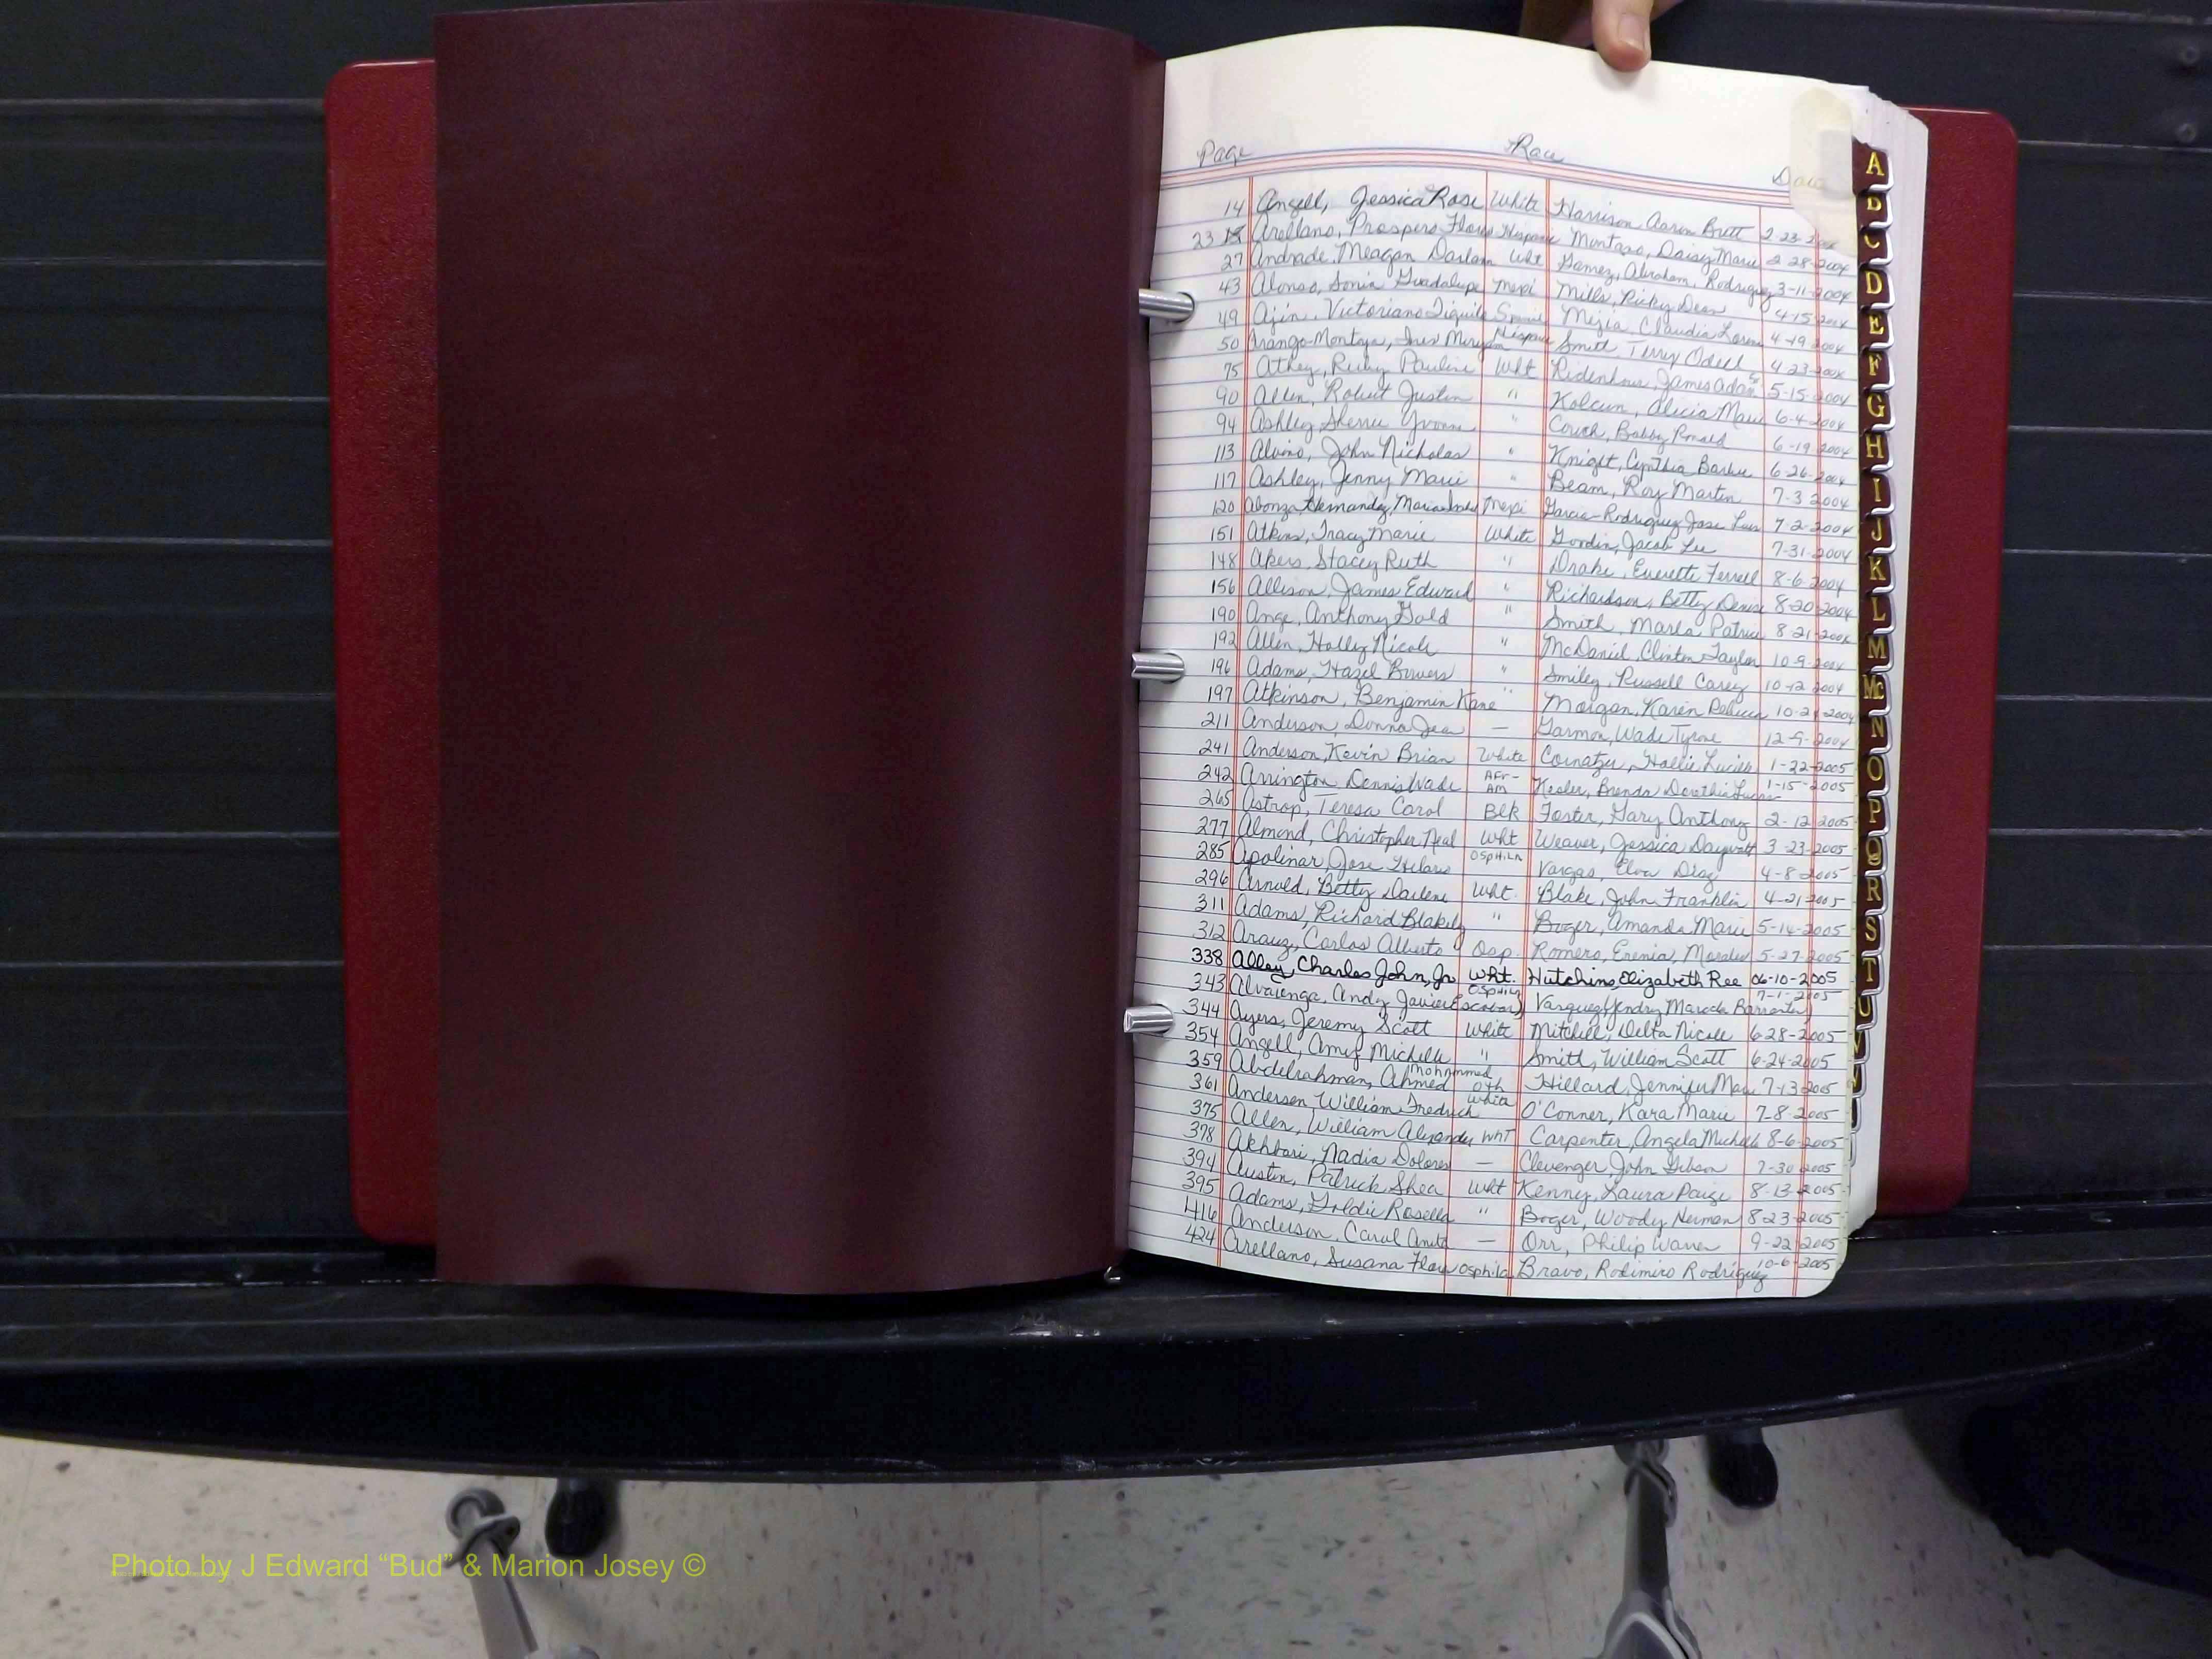 Page Race Date
14 Angell, Jessica Rose White Harrison, Aaron Brett 2-23-2004
23 Arellano, Prospero Flores Hispanic Montaso, Daisy Marie 2-28-2004
27 Andrade, Meagan Darlam Wht Gamez, Abraham, Rodriguez 3-11-2004
43 Alonso, Sonia Guadalupe Mexi Mills, Ricky Dean 4-15-2004
49 Ajin, Victoriano Mejia, Claudia Lorena 4-19-2004
50 Arango-Montoya, Ines Hispanic Smith, Terry Odell 4-23-2004
75 Athey, Ruby Pauline Wht Ridenhour, James Adam 5-15-2004
90 Allen, Robert Justin " Kolcun, Alicia Marie 6-4-2004
94 Ashley, Sherrie Yvonne " Couch, Bobby Ronald 6-19-2004
113 Alvino, John Nicholas " Knight, Cynthia Barbee 6-26-2004
117 Ashley, Jenny Marie " Beam, Roy Martin 7-3-2004
120 Hernandez, Maria Mexi Garcia-Rodriguez Jose Luis 7-2-2004
151 Atkins, Tracy Marie White Gordin, Jacob Lee 7-31-2004
148 Akers, Stacey Ruth " Drake, Everette Ferrell 8-6-2004
156 Allison, James Edward " Richardson, Betty Denise 8-20-2004
190 Ange, Anthony Gold " Smith, Marla Patrice 8-21-2004
192 Allen, Holly Nicole " McDaniel, Clinton Taylor 10-9-2004
196 Adams, Hazel Bowers " Smiley, Russell Carey 10-12-2004
197 Atkinson, Benjamin Kane " Morgan, Karen Rebecca 2004
211 Anderson, Donna Jean — Garmon, Wade Tyrone 12-9-2004
241 Anderson, Kevin Brian White Cornatzer, Hallie Lucille 1-22-2005
242 Arrington, Dennis Wade AFr-AM Kesler, Brenda 1-15-2005
265 Astrop, Teresa Carol Blk Foster, Gary Anthony 2-12-2005
277 Almond, Christopher Neal Wht Weaver, Jessica Daywalt 3-23-2005
285 Apolinar, Jose Hilario OSpHiLa Vargas, Elva Diaz 4-8-2005
296 Arnold, Betty Darlene Wht. Blake, John Franklin 4-21-2005
311 Adams, Richard Blakely " Boger, Amanda Marie 5-14-2005
312 Arauz, Carlos Alberto Osp. Romero, Erenia, Morales 5-27-2005
338 Alley, Charles John, Jr Wht. Hutchins, Elizabeth Ree 06-10-2005
343 Alvarenga, Andy Javier Escobar) OSpHiLa 7-1-2005
344 Ayers, Jeremy Scott White Mitchell, Delta Nicole 6-28-2005
354 Angell, Amy Michelle " Smith, William Scott 6-24-2005
359 Abdelrahman, Ahmed Mohammed oth Hillard, Jennifer Marie 7-13-2005
361 Andersen William Fredrich White O'Conner, Kara Marie 7-8-2005
375 Allen, William Alexander WHT Carpenter, Angela Michele 8-6-2005
378 Akhbari, Nadia Dolores — Clevenger John Gibson 7-30-2005
394 Austin, Patrick Shea Wht Kenny, Laura Paige 8-13-2005
395 Adams, Goldie Rosella " Boger, Woody Herman 8-23-2005
416 Anderson, Carol Anita — Orr, Philip Warren 9-22-2005
424 Arellano, Susana Flores Osphila Bravo, Rodimiro Rodriguez 10-6-2005
A
B
C
D
E
F
G
H
I
J
K
L
M
Mc
N
O
P
Q
R
S
T
U
V
W
Photo by J Edward “Bud” & Marion Josey ©